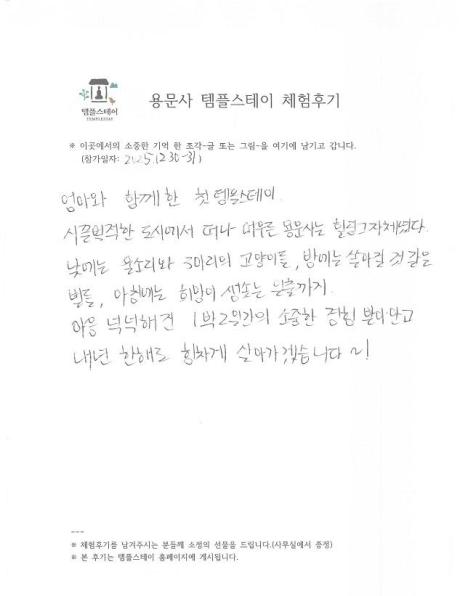 템플스테이
TEMPLESTAY
용문사 템플스테이 체험후기
※ 이곳에서의 소중한 기억 한 조각-글 또는 그림-을 여기에 남기고 갑니다.
(참가일자: 2025.12.30-31)
엄마와 함께한 첫 템플스테이.
시끌벅적한 도시에서 떠나 머무른 용문사는 힐링 그 자체였다.
낮에는 물소리와 3마리의 고양이들, 밤에는 쏟아질 것 같은
별들, 아침에는 희망이 샘솟는 일출까지.
마음 넉넉해진 1박2일간의 소중한 경험 받아안고
내년 한해도 힘차게 살아가겠습니다~!
---
※ 체험후기를 남겨주시는 분들께 소정의 선물을 드립니다.(사무실에서 증정)
※ 본 후기는 템플스테이 홈페이지에 게시됩니다.